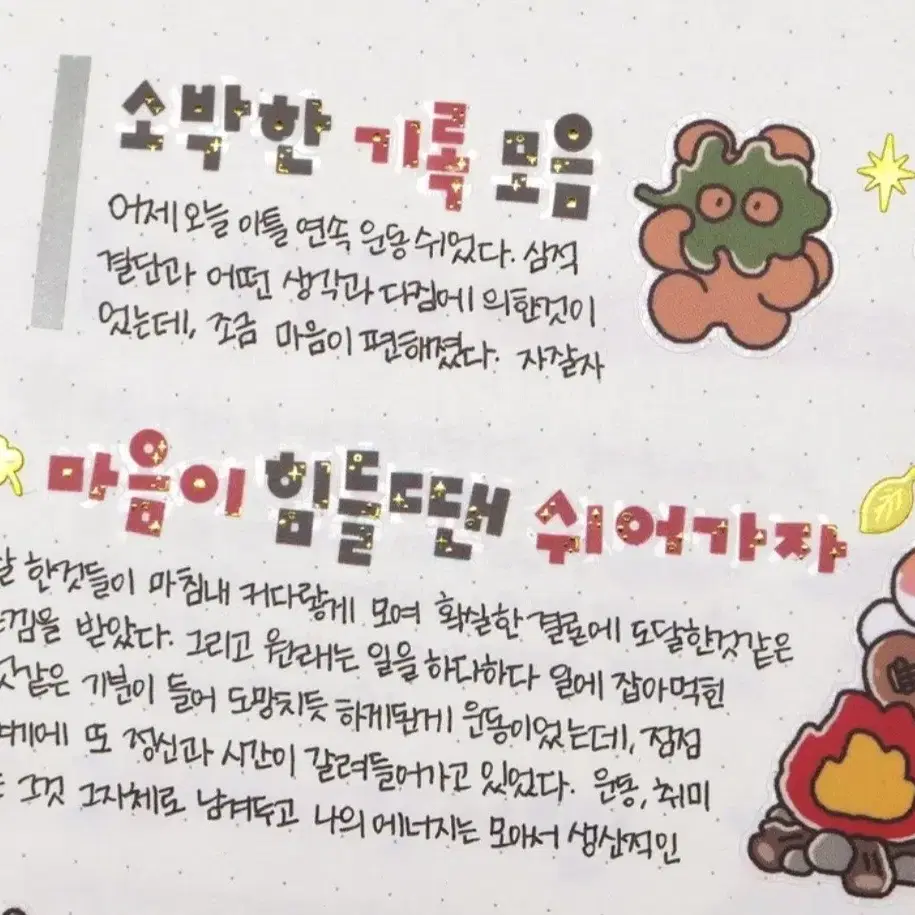 소박한 기록 모음
어제 오늘 이틀 연속 운동 쉬었다. 삼적
결단과 어떤 생각과 다짐에 의한것이
었는데, 조금 마음이 편해졌다. 자잘자
마음이 힘들땐 쉬어가자
잘 한것들이 마침내 커다랗게 모여 확실한 결론에 도달한것같은
느낌을 받았다. 그리고 원래는 일을 하다하다 일에 잡아먹힌
것같은 기분이 들어 도망치듯 하게된게 운동이었는데, 점점
에 또 정신과 시간이 갈려들어가고 있었다. 운동, 취미
그것 그자체로 남겨두고 나의 에너지는 모아서 생산적인